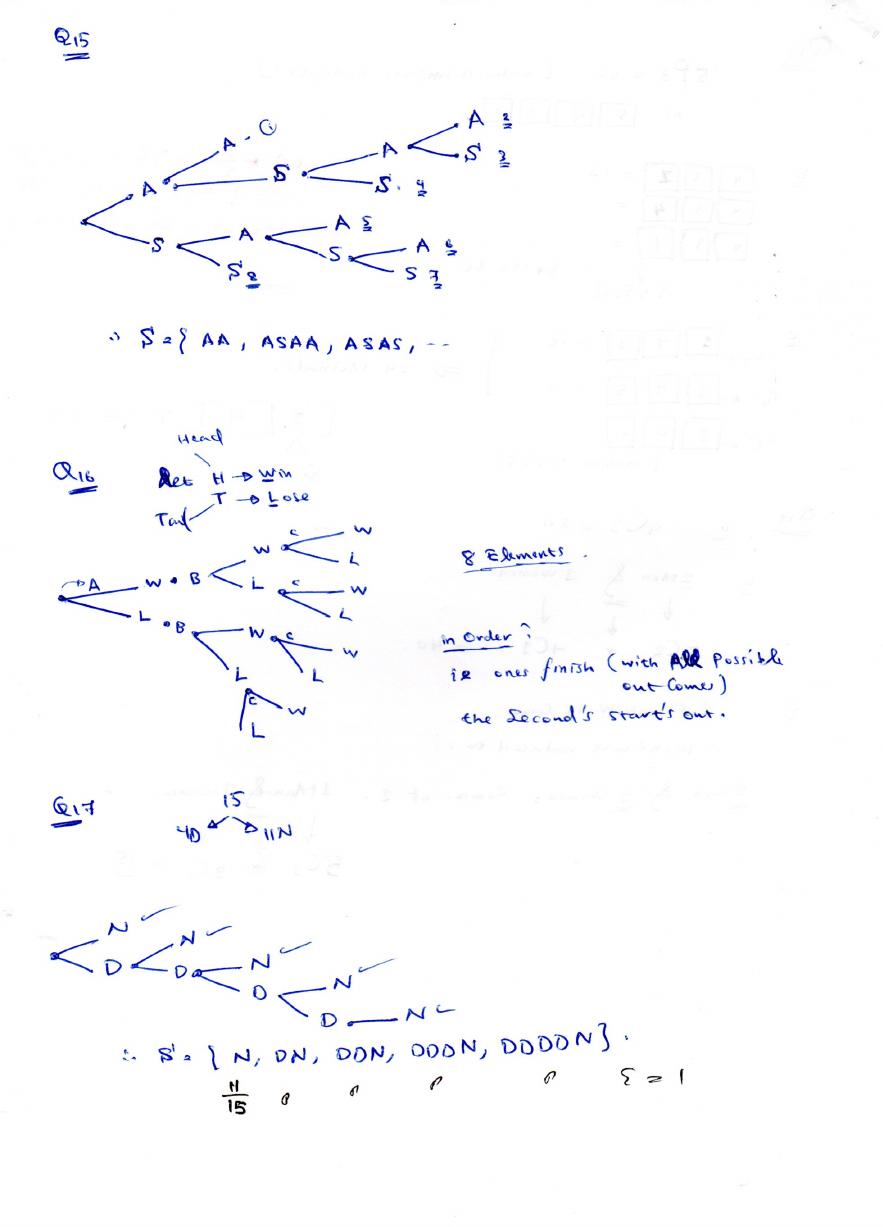 Q15
A ①
A 2
A
S 3
A
S
S 4
S
A
A 5
S
A 6
S 7
S 8
∴ S = { AA, ASAA, ASAS, --
Head
Q16 Let H → Win
T → Lose
Tail
A W B W C W
L
L C W
L
L B W C W
L
L C W
L
8 Elements.
in Order :
ie ones finish (with All Possible
out Comes)
the Second's start's out.
Q17 15
4D 11N
N ✓
D N ✓
D N ✓
D N ✓
D N ✓
∴ S = { N, DN, DDN, DDDN, DDDDN }.
11/15 Σ = 1